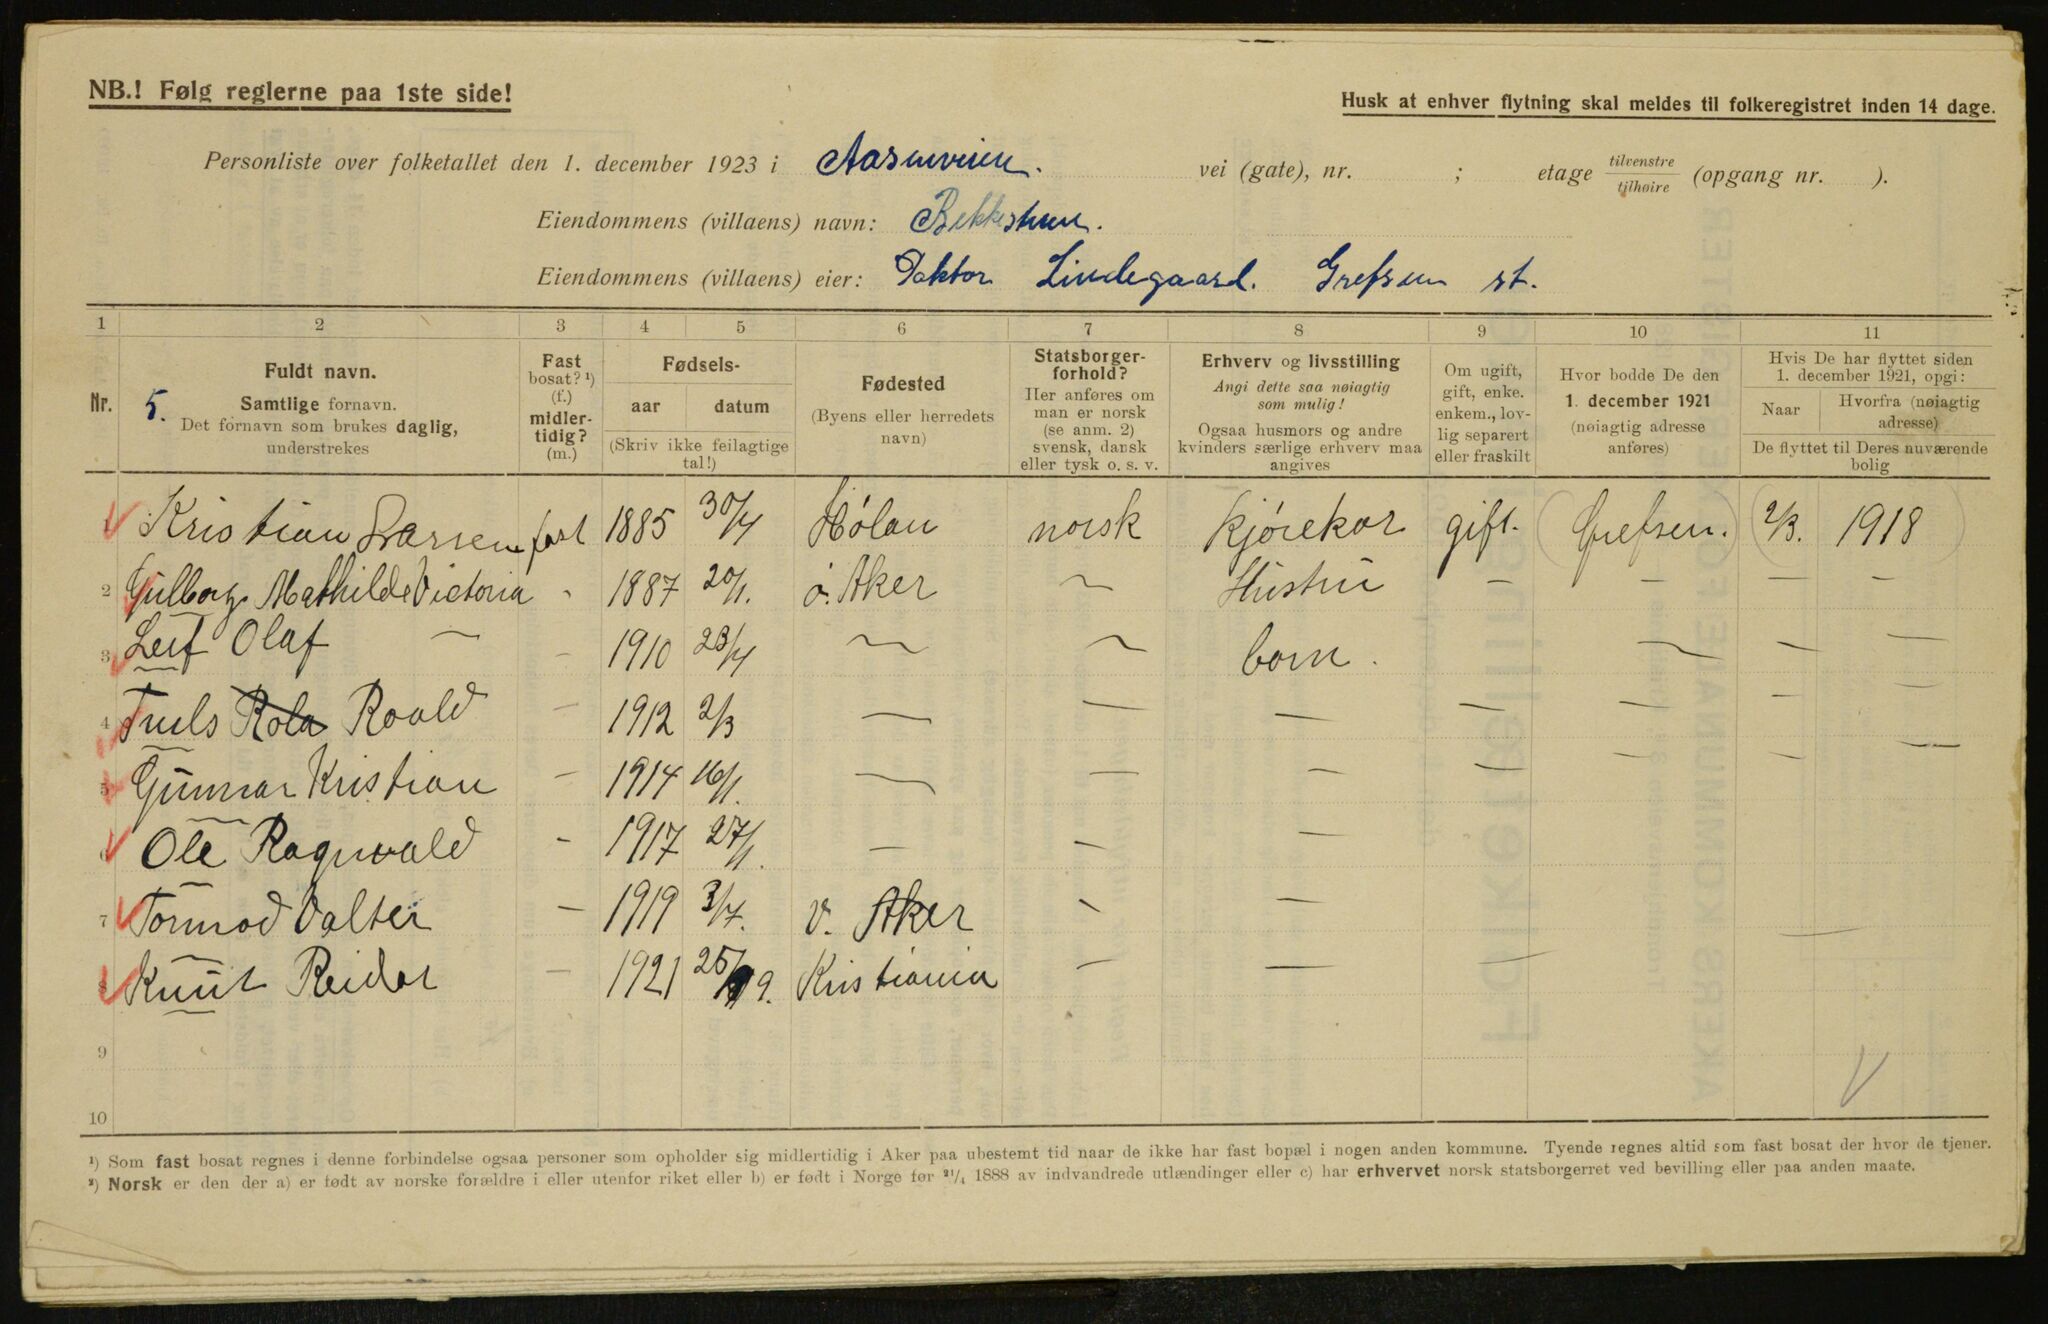 NB.! Følg reglerne paa 1ste side!
Husk at enhver flytning skal meldes til folkeregistret inden 14 dage.
Personliste over folketallet den 1. december 1923 i Aasenveien. vei (gate), nr. ; etage tilvenstre / tilhøire (opgang nr. ).
Eiendommens (villaens) navn: Bekkestuen.
Eiendommens (villaens) eier: Doktor Lindegaard. Grefsen st.
1 2 3 4 5 6 7 8 9 10 11
Nr. 5.
Fuldt navn.
Samtlige fornavn.
Det fornavn som brukes daglig,
understrekes
Fast
bosat? ¹)
(f.)
midler-
tidig?
(m.)
Fødsels-
aar datum
(Skriv ikke feilagtige
tal!)
Fødested
(Byens eller herredets
navn)
Statsborger-
forhold?
Her anføres om
man er norsk
(se anm. 2)
svensk, dansk
eller tysk o. s. v.
Erhverv og livsstilling
Angi dette saa nøiagtig
som mulig!
Ogsaa husmors og andre
kvinders særlige erhverv maa
angives
Om ugift,
gift, enke.
enkem., lov-
lig separert
eller fraskilt
Hvor bodde De den
1. december 1921
(nøiagtig adresse
anføres)
Hvis De har flyttet siden
1. december 1921, opgi:
Naar Hvorfra (nøiagtig
adresse)
De flyttet til Deres nuværende
bolig
1 Kristian Larsen fast 1885 30/4 Hölan norsk Kjörekar gift. (Grefsen.) (2/3. 1918)
2 Gulborg Mathilde Victoria - 1887 20/1. ö. Aker ~ Hustru - - - -
3 Leif Olaf ~ - 1910 23/4 ~ ~ barn. ~ - -
4 Truls Rola Roald - 1912 2/3 - - - - - - -
5 Gunnar Kristian - 1914 16/1. ~ - - - - - -
6 Ole Ragnvald - 1917 27/1. - - -
7 Tormod Valter - 1919 3/7. v. Aker - - -
8 Knut Reidar - 1921 25/9. Kristiania - - -
9
10
¹) Som fast bosat regnes i denne forbindelse ogsaa personer som opholder sig midlertidig i Aker paa ubestemt tid naar de ikke har fast bopæl i nogen anden kommune. Tyende regnes altid som fast bosat der hvor de tjener.
²) Norsk er den der a) er født av norske forældre i eller utenfor riket eller b) er født i Norge før 21/4 1888 av indvandrede utlændinger eller c) har erhvervet norsk statsborgerret ved bevilling eller paa anden maate.